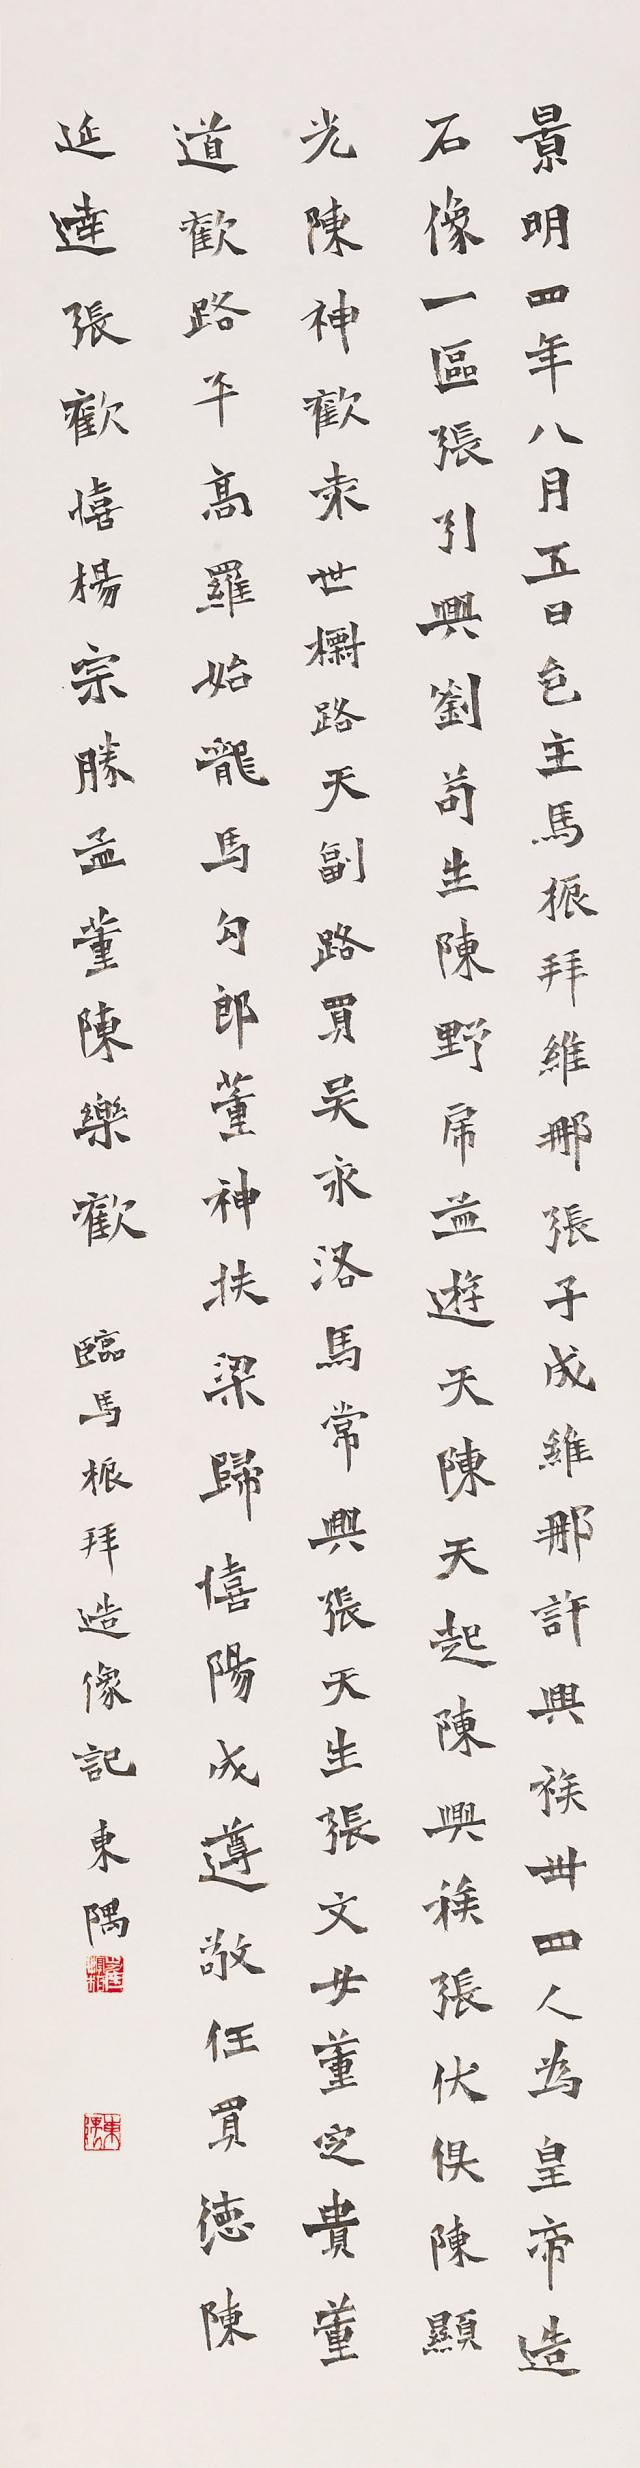 景明四年八月五日邑主馬振拜維那張子成維那許興族丗四人為皇帝造
石像一區張引興劉苟生陳野虎孟遊天陳天起陳興族張伏俱陳顯
光陳神歡朱世樹路天副路買吴永洛馬常興張天生張文安董定貴董
道歡路平高羅始龍馬勾郎董神扶梁歸僖陽成遵敬任買德陳
延達張歡僖楊宗勝孟董陳樂歡
臨馬振拜造像記東隅